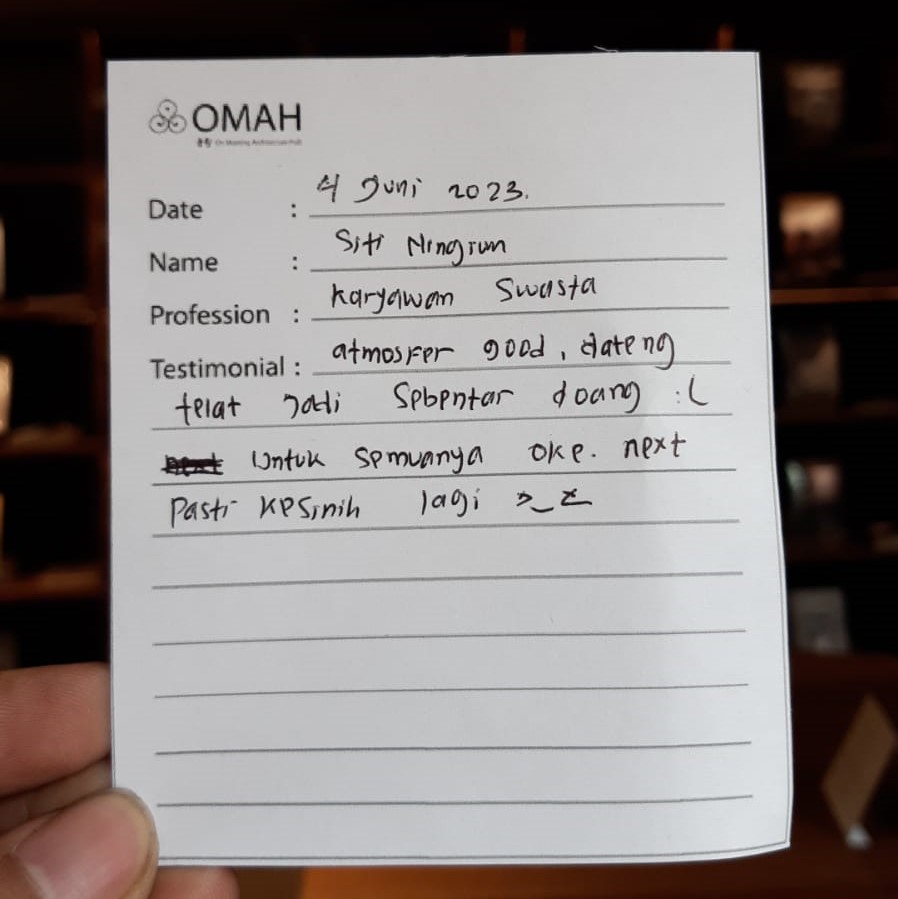 OMAH
On Making Architecture Hub
Date : 4 Juni 2023.
Name : Siti Ningrum
Profession : karyawan Swasta
Testimonial : atmosfer good, dateng
telat jadi Sebentar doang :(
Untuk semuanya oke. next
Pasti kesinih lagi >_<